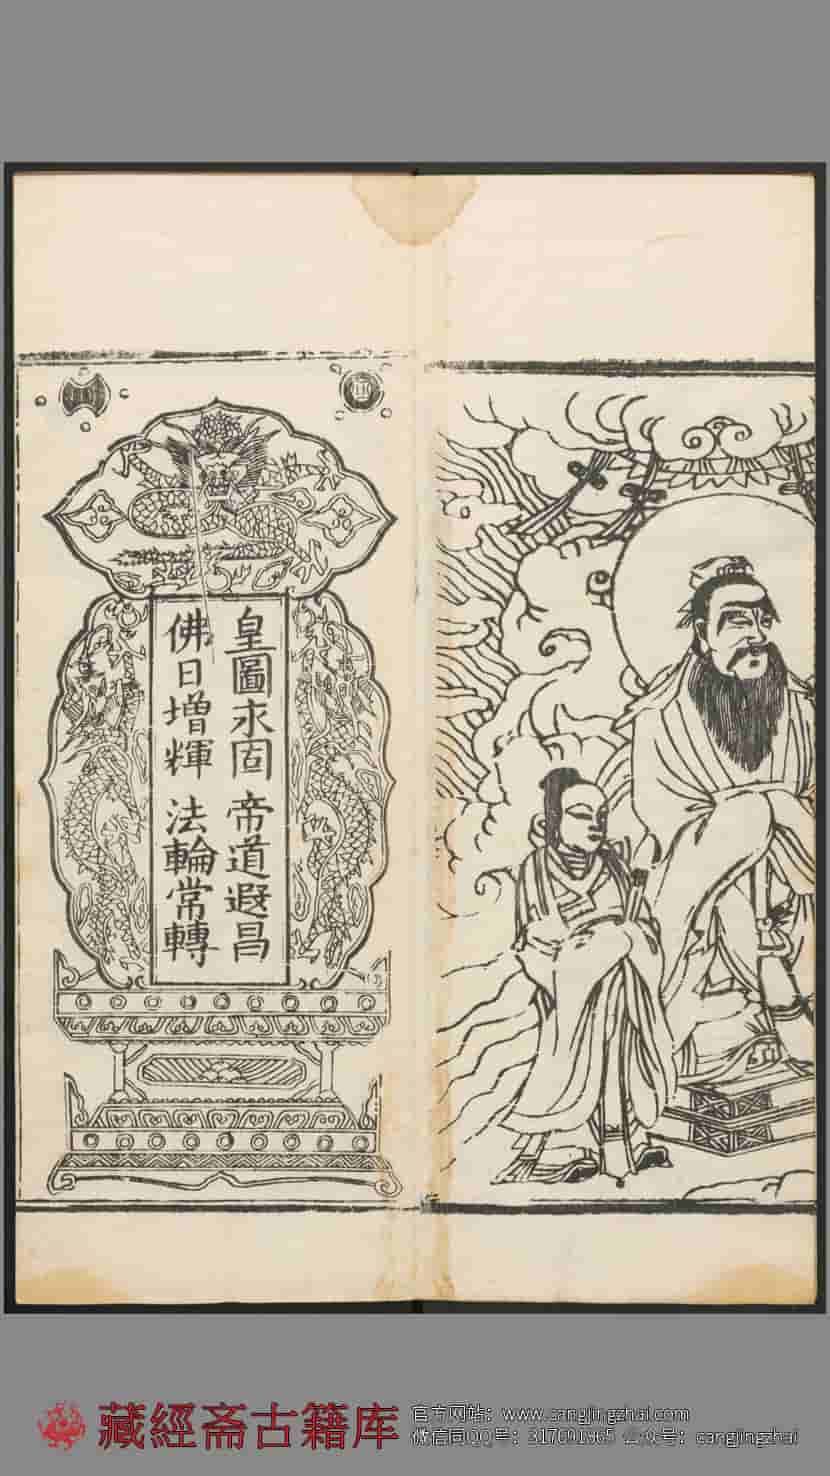 皇圖永固 帝道遐昌
佛日增輝 法輪常轉
藏經斋古籍库
官方网站：www.cangjingzhai.com
微信同QQ号：317691965 公众号：cangjingzhai